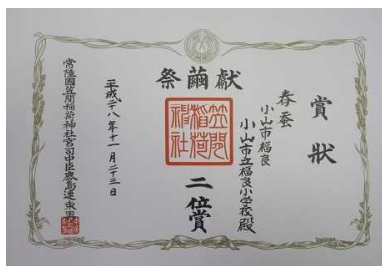 献繭祭
賞状
春蚕
小山市福良
小山市立福良小学校殿
二位賞
笠間稲荷神社
平成二十八年十一月二十三日
常陸国笠間稲荷神社宮司